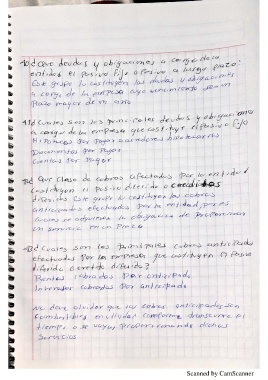 10¿ Que deudas y obligaciones a cargo de la
entidad el pasivo fijo o pasivo a largo plazo?
Este grupo lo constituyen las deudas y obligaciones
a cargo de la empresa cuyo vencimiento sea en
Plazo mayor de un año
11¿ Cuales son las principales deudas y obligaciones
a cargo de la empresa que constituyen el Pasivo Fijo
Hipotecas Por Pagar o acreedores hipotecarios
Documentos por Pagar
Cuentas por Pagar
¿ Que clase de cobros efectuados Por la entidad
constituyen el Pasivo diferido o creditos
diferidos Este grupo lo constituyen los cobros
anticipados efectuados por la entidad, por los
cuales se adquiere la obligacion de proporcionar
un servicio en un Plazo
¿ Cuales son los Principales cobros anticipados
efectuados Por la empresa que constituyen el Pasivo
diferido credito diferido?
Rentas cobradas Por anticipado
Intereses cobrados Por anticipado
no debe olvidar que los cobros anticipados son
conforme transcurre el
tiempo o se vayan Proporcionando dichos
Servicios
Scanned by CamScanner